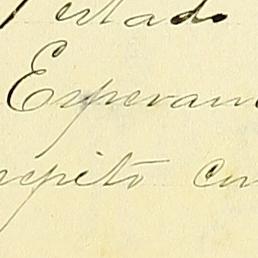 estado
Esperam
repito con